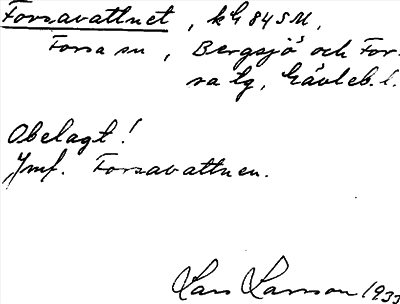 Forsavattnet, kG 84 SM,
Forsa sn, Bergsjö och For-
sa tg, Gävleb. l.
Obelagt!
Jmf. Forsavattnen.
Lars Larsson 1933